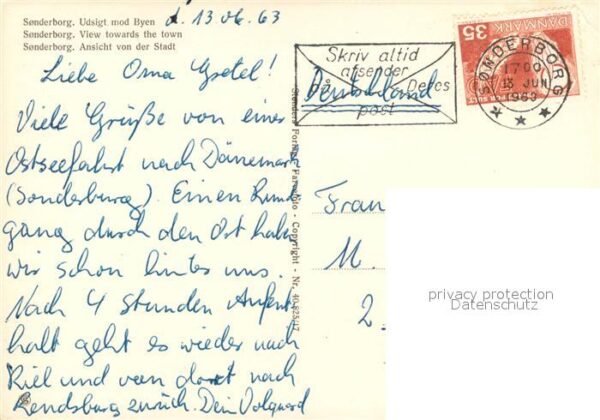 Sønderborg. Udsigt mod Byen
Sønderborg. View towards the town
Sønderborg. Ansicht von der Stadt
d. 13.06.63
Liebe Oma Gretel!
Viele Grüße von einer
Ostseefahrt nach Dänemark
(Sonderburg). Einen Rund
gang durch den Ort haben
wir schon hinter uns.
Nach 4 Stunden Aufent
halt geht es wieder nach
Kiel und von dort nach
Rendsburg zurück. Dein Volquard
Skriv altid
afsender
på Deres
post
Deutschland
DANMARK
35
SØNDERBORG
1700
13 JUN
1963
Copyright - Nr.
Frau
M.
2
privacy protection
Datenschutz